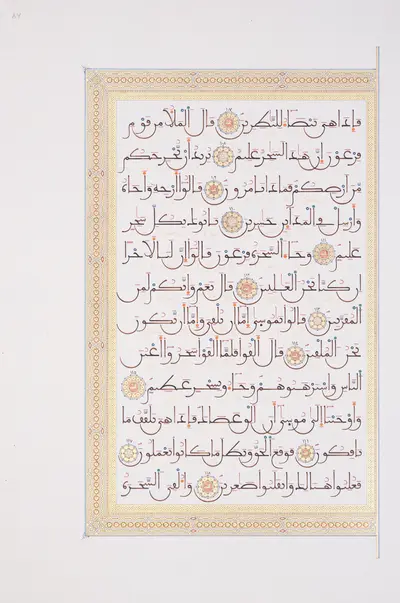 فإذا هي بيضاء للنظرين قال الملأ من قوم
فرعون إن هذا لسحر عليم يريد أن يخرجكم
من أرضكم فماذا تأمرون قالوا أرجه وأخاه
وأرسل في المدائن حشرين يأتوك بكل سحر
عليم وجاء السحرة فرعون قالوا إن لنا لأجرا
إن كنا نحن الغلبين قال نعم وإنكم لمن
المقربين قالوا يموسى إما أن تلقي وإما أن نكون
نحن الملقين قال ألقوا فلما ألقوا سحروا أعين
الناس واسترهبوهم وجاءو بسحر عظيم
وأوحينا إلى موسى أن ألق عصاك فإذا هي تلقف ما
يأفكون فوقع الحق وبطل ما كانوا يعملون
فغلبوا هنالك وانقلبوا صغرين وألقي السحرة